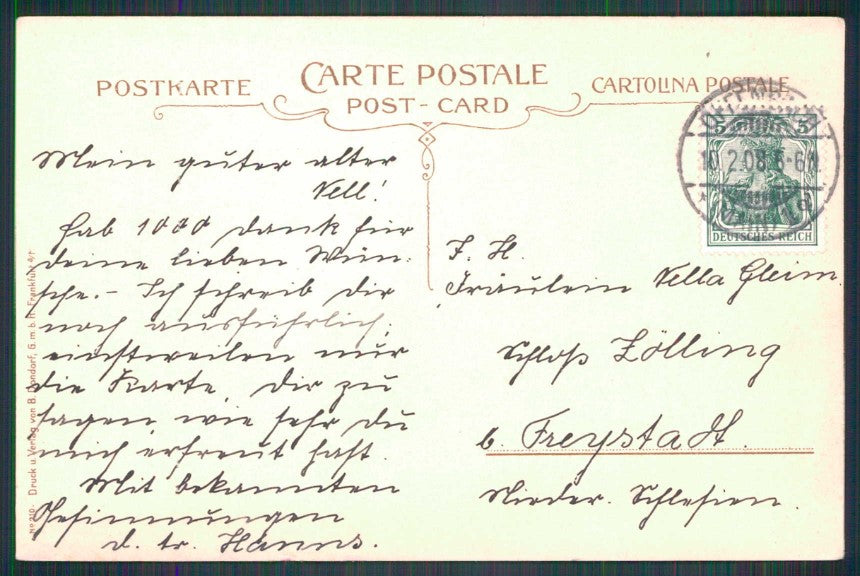 POSTKARTE
CARTE POSTALE
POST-CARD
CARTOLINA POSTALE
5 5
10.2.08. 5-6N.
DEUTSCHES REICH
Mein guter alter
Vell!
Hab 1000 Dank für
deine lieben Wün-
sche. - Ich schreib Dir
noch ausführlich,
einstweilen nur
die Karte, Dir zu
sagen, wie sehr Du
mich erfreut hast.
Mit bekannten
Gesinnungen
d. tr. Hanns.
F. H.
Fräulein Vella Gleim.
Schloß Zölling
b. Freystadt.
Nieder. Schlesien.
Druck u. Verlag von B. Dondorf, G.m.b.H. Frankfurt a/